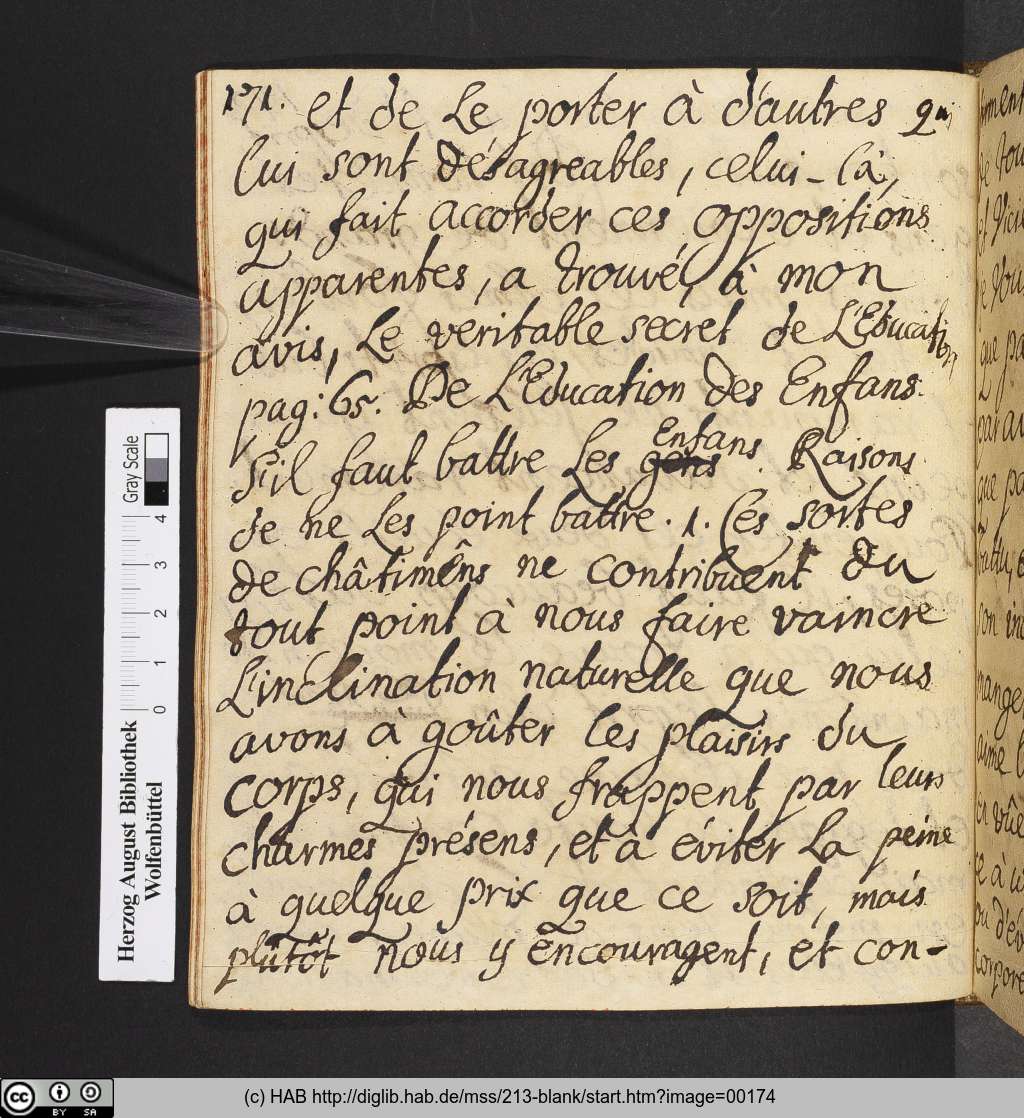 171. et de Le porter à d'autres qui
lui sont désagreables, celui-là,
qui fait accorder ces oppositions
apparentes, a trouvé, à mon
avis, Le veritable secret de L'Education
pag: 65. De L'Education des Enfans.
S'il faut battre Les gens Enfans. Raisons
de ne Les point battre. 1. Ces sortes
de châtimêns ne contribuent du
tout point à nous faire vaincre
L'inclination naturelle que nous
avons à goûter les plaisirs du
corps, qui nous frappent par leurs
charmes présens, et à éviter La peine
à quelque prix que ce soit, mais
plûtôt nous y encouragent, et con-
Herzog August Bibliothek
Wolfenbüttel
0 1 2 3 4
Gray Scale
cc BY SA
(c) HAB http://diglib.hab.de/mss/213-blank/start.htm?image=00174